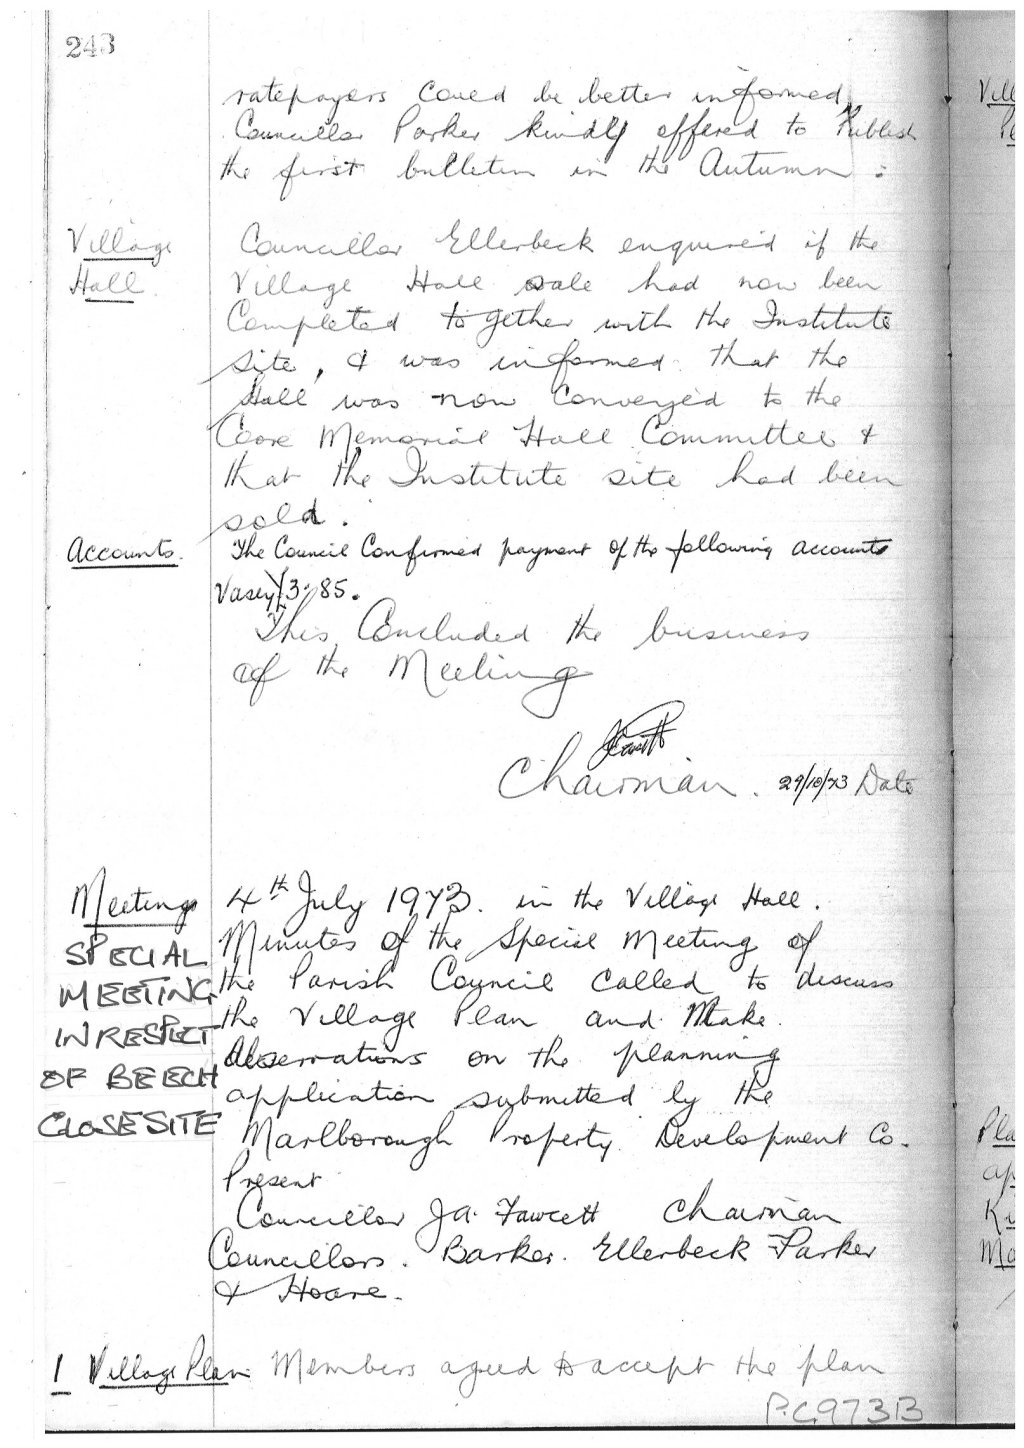 243
ratepayers could be better informed,
Councillor Parker kindly offered to Publish
the first bulletin in the Autumn.
Village
Hall.
Councillor Ellerbeck enquired if the
Village Hall sale had now been
Completed together with the Institute
site, & was informed that the
Hall was now conveyed to the
Coore Memorial Hall Committee &
that the Institute site had been
sold.
Accounts.
The Council Confirmed payment of the following accounts
Vasey £3.85.
This Concluded the business
of the Meeting
Chairman. 29/10/73 Date
Meetings
SPECIAL
MEETING
IN RESPECT
OF BEECH
CLOSE SITE
4th July 1973. in the Village Hall.
Minutes of the Special Meeting of
the Parish Council called to discuss
the Village Plan and Make
Observations on the planning
application submitted by the
Marlborough Property Development Co.
Present
Councillor J A. Fawcett Chairman
Councillors. Barker. Ellerbeck Parker
& Hoare.
1 Village Plan. Members agreed to accept the plan
P.C973B